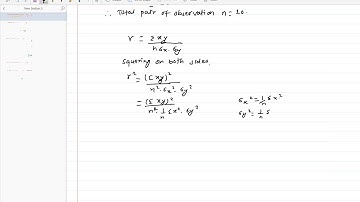 ∴ Total pair of observation n = 10.
r = Σxy / nσx·σy
squaring on both sides.
r² = (Σxy)² / n²·σx²·σy²
= (Σxy)² / n²·1/n Σx²·σy²
σx² = 1/n Σx²
σy² = 1/n Σ